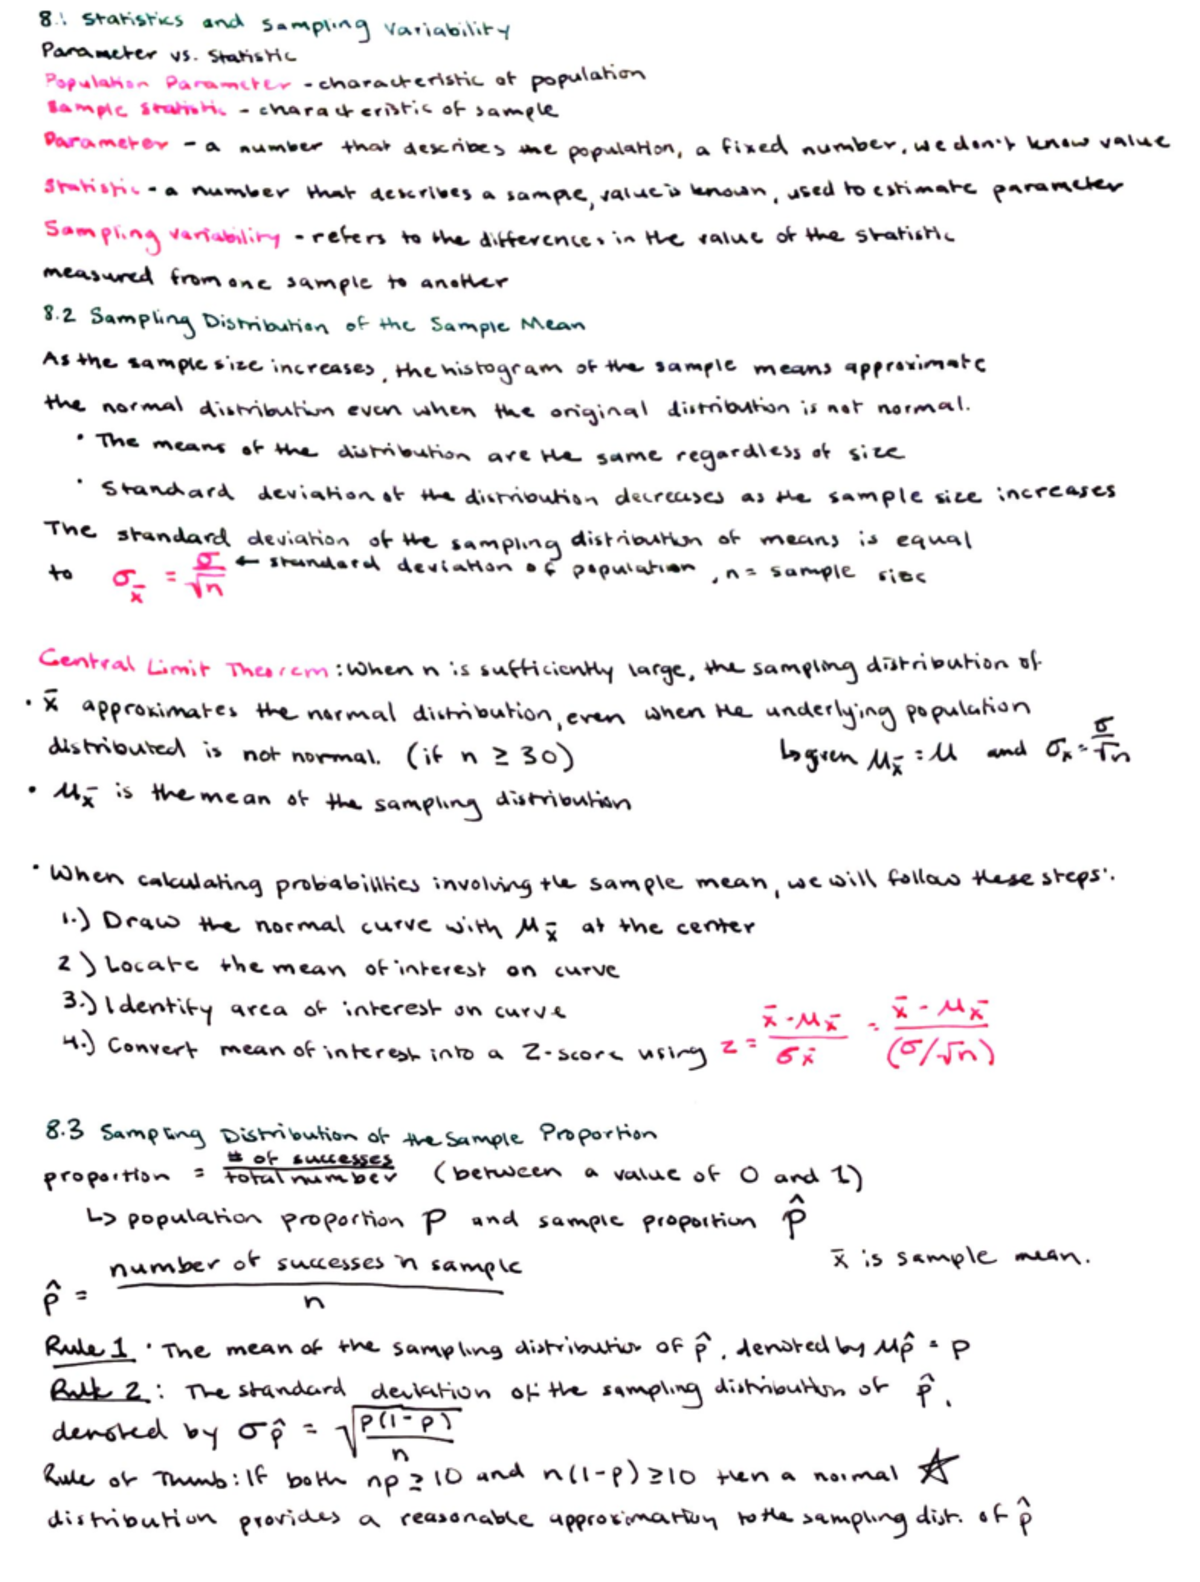 8.1 Statistics and Sampling Variability
Parameter vs. Statistic
Population Parameter - characteristic of population
Sample Statistic - characteristic of sample
Parameter - a number that describes the population, a fixed number, we don't know value
Statistic - a number that describes a sample, value is known, used to estimate parameter
Sampling variability - refers to the differences in the value of the statistic
measured from one sample to another
8.2 Sampling Distribution of the Sample Mean
As the sample size increases, the histogram of the sample means approximate
the normal distribution even when the original distribution is not normal.
• The means of the distribution are the same regardless of size
• Standard deviation of the distribution decreases as the sample size increases
The standard deviation of the sampling distribution of means is equal
to σx̄ = σ/√n ← standard deviation of population, n = sample size
Central Limit Theorem: When n is sufficiently large, the sampling distribution of
• x̄ approximates the normal distribution, even when the underlying population
distributed is not normal. (if n ≥ 30) ↳ given μx̄ = μ and σx = σ/√n
• μx̄ is the mean of the sampling distribution
• When calculating probabilities involving the sample mean, we will follow these steps:
1.) Draw the normal curve with μx̄ at the center
2) Locate the mean of interest on curve
3.) Identify area of interest on curve
4.) Convert mean of interest into a Z-score using z = x̄ - μx̄ / σx̄ = x̄ - μx̄ / (σ/√n)
8.3 Sampling Distribution of the Sample Proportion
proportion = # of successes / total number (between a value of 0 and 1)
↳ population proportion P and sample proportion p̂
p̂ = number of successes in sample / n x̄ is sample mean.
Rule 1 • The mean of the sampling distribution of p̂, denoted by μp̂ = p
Rule 2: The standard deviation of the sampling distribution of p̂,
denoted by σp̂ = √p(1-p)/n
Rule of Thumb: If both np ≥ 10 and n(1-p) ≥ 10 then a normal ☆
distribution provides a reasonable approximation to the sampling dist. of p̂